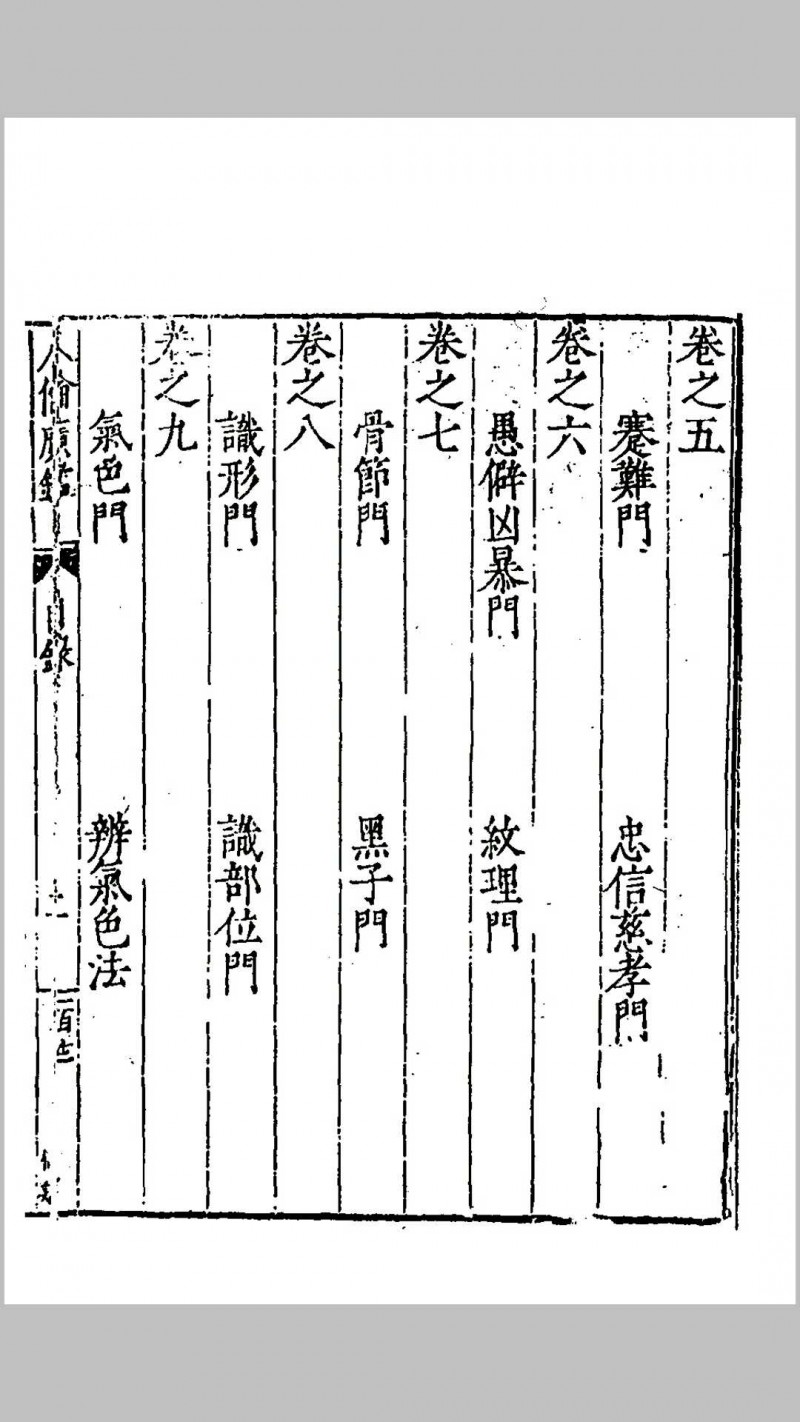 卷之五
蹇難門　忠信慈孝門
卷之六
愚僻凶暴門　紋理門
卷之七
骨節門　黑子門
卷之八
識形門　識部位門
卷之九
氣色門　辨氣色法
人倫廣鑑　目錄